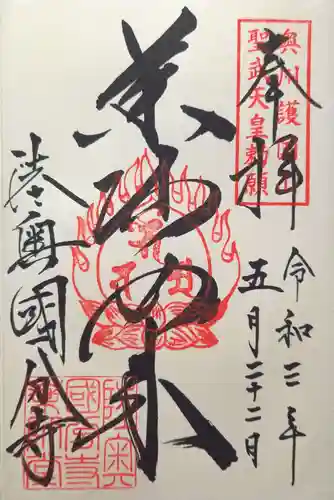 奥州護国
聖武天皇勅願
奉拝
令和三年
五月二十二日
薬師如来
陸奥國分寺
陸奥
國分寺